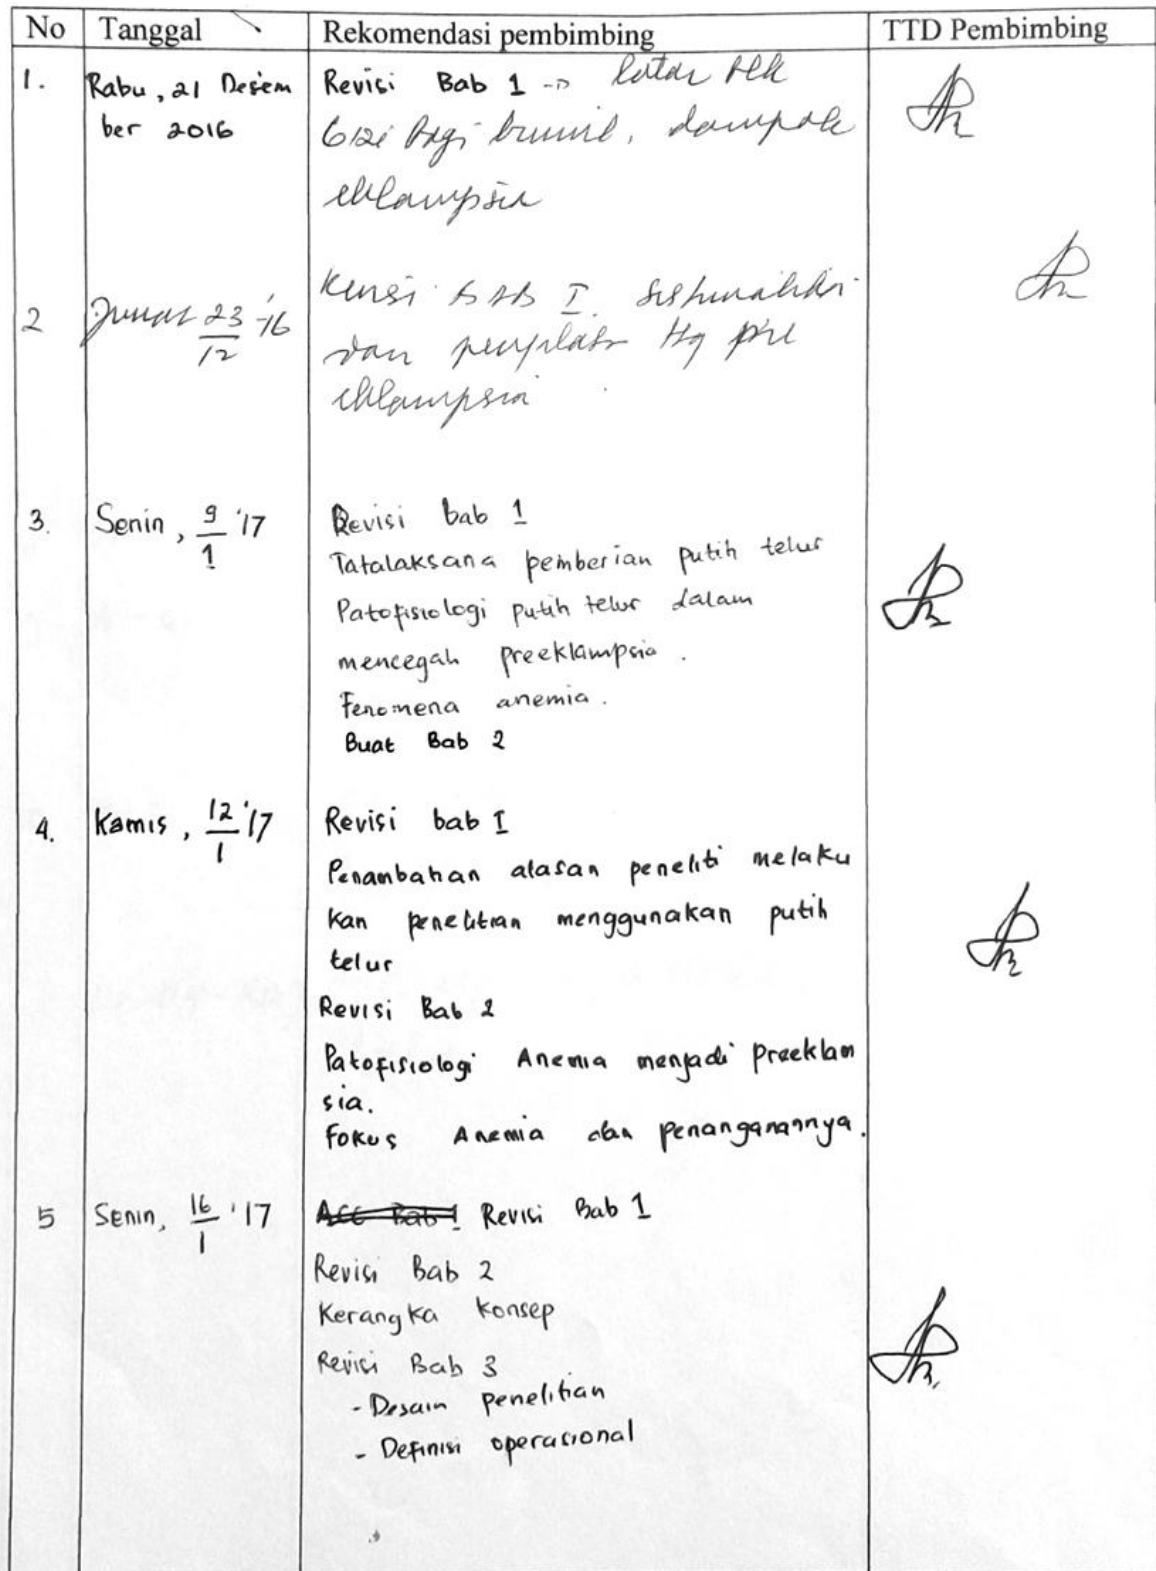 No Tanggal Rekomendasi pembimbing TTD Pembimbing
1. Rabu, 21 Desem Revisi Bab 1 → latar blk
ber 2016 Gizi bagi bumil, dampak
eklampsia
2 Jumat 23/12 '16 Revisi BAB I. sistematika
dan penjelasan ttg pre
eklampsia
3. Senin, 9/1 '17 Revisi bab 1
Tatalaksana pemberian putih telur
Patofisiologi putih telur dalam
mencegah preeklampsia.
Fenomena anemia.
Buat Bab 2
4. Kamis, 12/1 '17 Revisi bab I
Penambahan alasan peneliti melaku
kan penelitian menggunakan putih
telur
Revisi Bab 2
Patofisiologi Anemia menjadi preeklam
sia.
Fokus Anemia dan penanganannya.
5 Senin, 16/1 '17 Acc Bab 1 Revisi Bab 1
Revisi Bab 2
Kerangka konsep
Revisi Bab 3
- Desain penelitian
- Definisi operasional